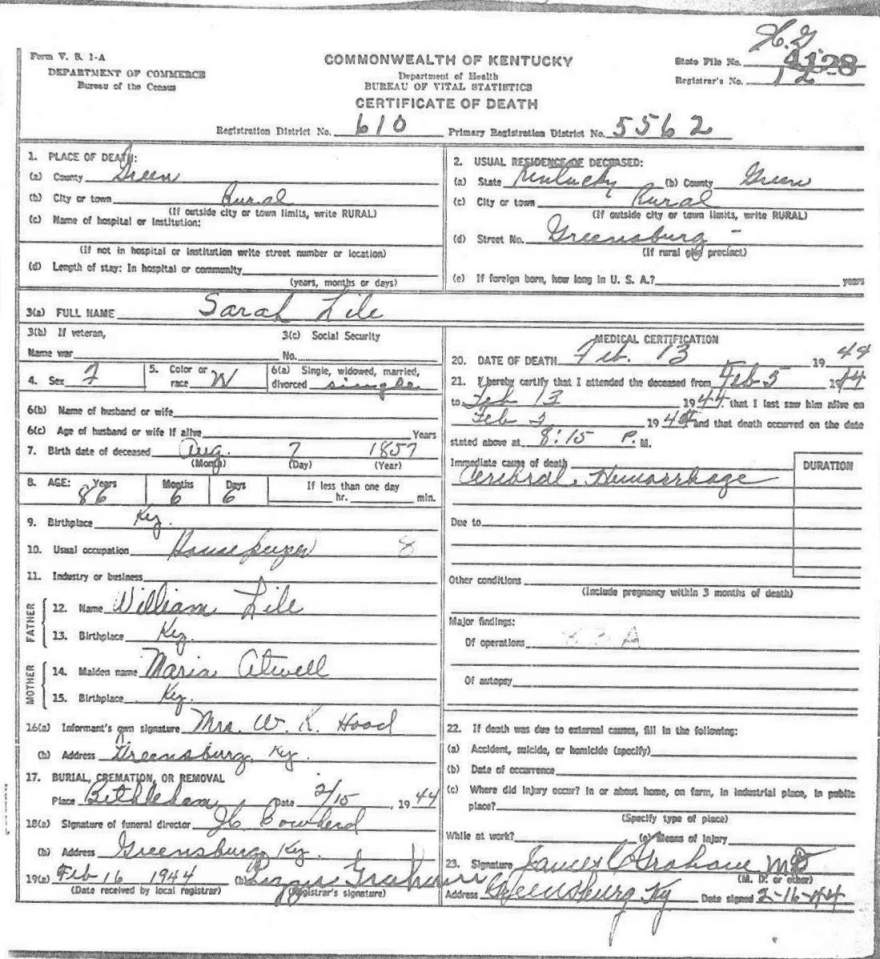 Form V. S. 1-A
DEPARTMENT OF COMMERCE
Bureau of the Census
COMMONWEALTH OF KENTUCKY
Department of Health
BUREAU OF VITAL STATISTICS
CERTIFICATE OF DEATH
State File No. 4128
Registrar's No.
Registration District No. 610 Primary Registration District No. 5562
1. PLACE OF DEATH:
(a) County Green
(b) City or town Rural
(If outside city or town limits, write RURAL)
(c) Name of hospital or institution:
(If not in hospital or institution write street number or location)
(d) Length of stay: In hospital or community
(years, months or days)
2. USUAL RESIDENCE OF DECEASED:
(a) State Kentucky (b) County Green
(c) City or town Rural
(If outside city or town limits, write RURAL)
(d) Street No. Greensburg -
(If rural give precinct)
(e) If foreign born, how long in U. S. A.? years
3(a) FULL NAME Sarah Lile
3(b) If veteran,
Name war
3(c) Social Security
No.
4. Sex F
5. Color or race W
6(a) Single, widowed, married, divorced single
6(b) Name of husband or wife
6(c) Age of husband or wife if alive Years
7. Birth date of deceased Aug. 7 1857
(Month) (Day) (Year)
8. AGE: Years 86 Months 6 Days 6 If less than one day hr. min.
9. Birthplace Ky.
10. Usual occupation Housekeeper 8
11. Industry or business
FATHER
12. Name William Lile
13. Birthplace Ky.
MOTHER
14. Maiden name Maria Atwell
15. Birthplace Ky.
16(a) Informant's own signature Mrs. W. K. Hood
(b) Address Greensburg, Ky.
17. BURIAL, CREMATION, OR REMOVAL
Place Bethleham Date 2/15 1944
18(a) Signature of funeral director
(b) Address Greensburg, Ky.
19(a) Feb 16 1944 (b) Graham
(Date received by local registrar) (Registrar's signature)
MEDICAL CERTIFICATION
20. DATE OF DEATH Feb. 13 1944
21. I hereby certify that I attended the deceased from Feb 5 1944
to Feb 13 1944 that I last saw him alive on
Feb 1944 and that death occurred on the date
stated above at 8:15 P. M.
Immediate cause of death DURATION
Cerebral Hemorrhage
Due to
Other conditions
(Include pregnancy within 3 months of death)
Major findings:
Of operations
Of autopsy
22. If death was due to external causes, fill in the following:
(a) Accident, suicide, or homicide (specify)
(b) Date of occurrence
(c) Where did injury occur? In or about home, on farm, in industrial place, in public
place?
(Specify type of place)
While at work? (e) Means of injury
23. Signature James C Graham MD
(M. D. or other)
Address Greensburg Ky Date signed 2-16-44